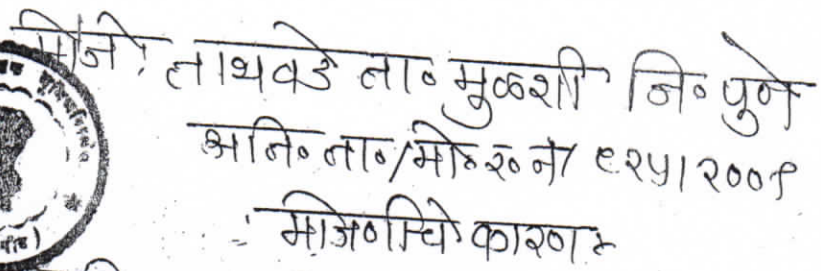 मौजे. ताथवडे ता० मुळशी जि० पुणे
अति० ता०/मो० र० नं/ ९२५/२००९
मोजणीचे कारण :-